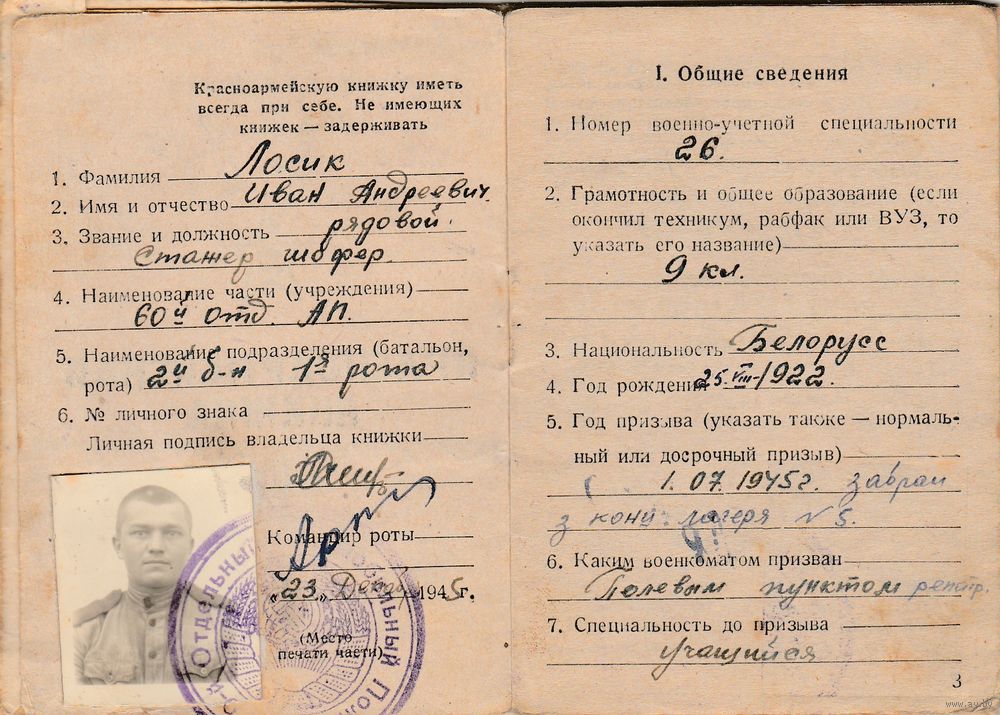 Красноармейскую книжку иметь
всегда при себе. Не имеющих
книжек — задерживать
1. Фамилия Лосик
2. Имя и отчество Иван Андреевич
3. Звание и должность рядовой
Стажер шофер
4. Наименование части (учреждения)
60й отд. АП.
5. Наименование подразделения (батальон,
рота) 2й б-н 1я рота
6. № личного знака
Личная подпись владельца книжки
Командир роты
„23„ 1945 г.
(Место
печати части)
Отдельный
I. Общие сведения
1. Номер военно-учетной специальности
26.
2. Грамотность и общее образование (если
окончил техникум, рабфак или ВУЗ, то
указать его название)
9 кл.
3. Национальность Белорусс
4. Год рождения 25.VIII-1922.
5. Год призыва (указать также — нормаль-
ный или досрочный призыв)
1.07.1945г. забран
з конц. лагеря N 5.
6. Каким военкоматом призван
Полевым пунктом репатр.
7. Специальность до призыва
учащийся
3
www.au.by